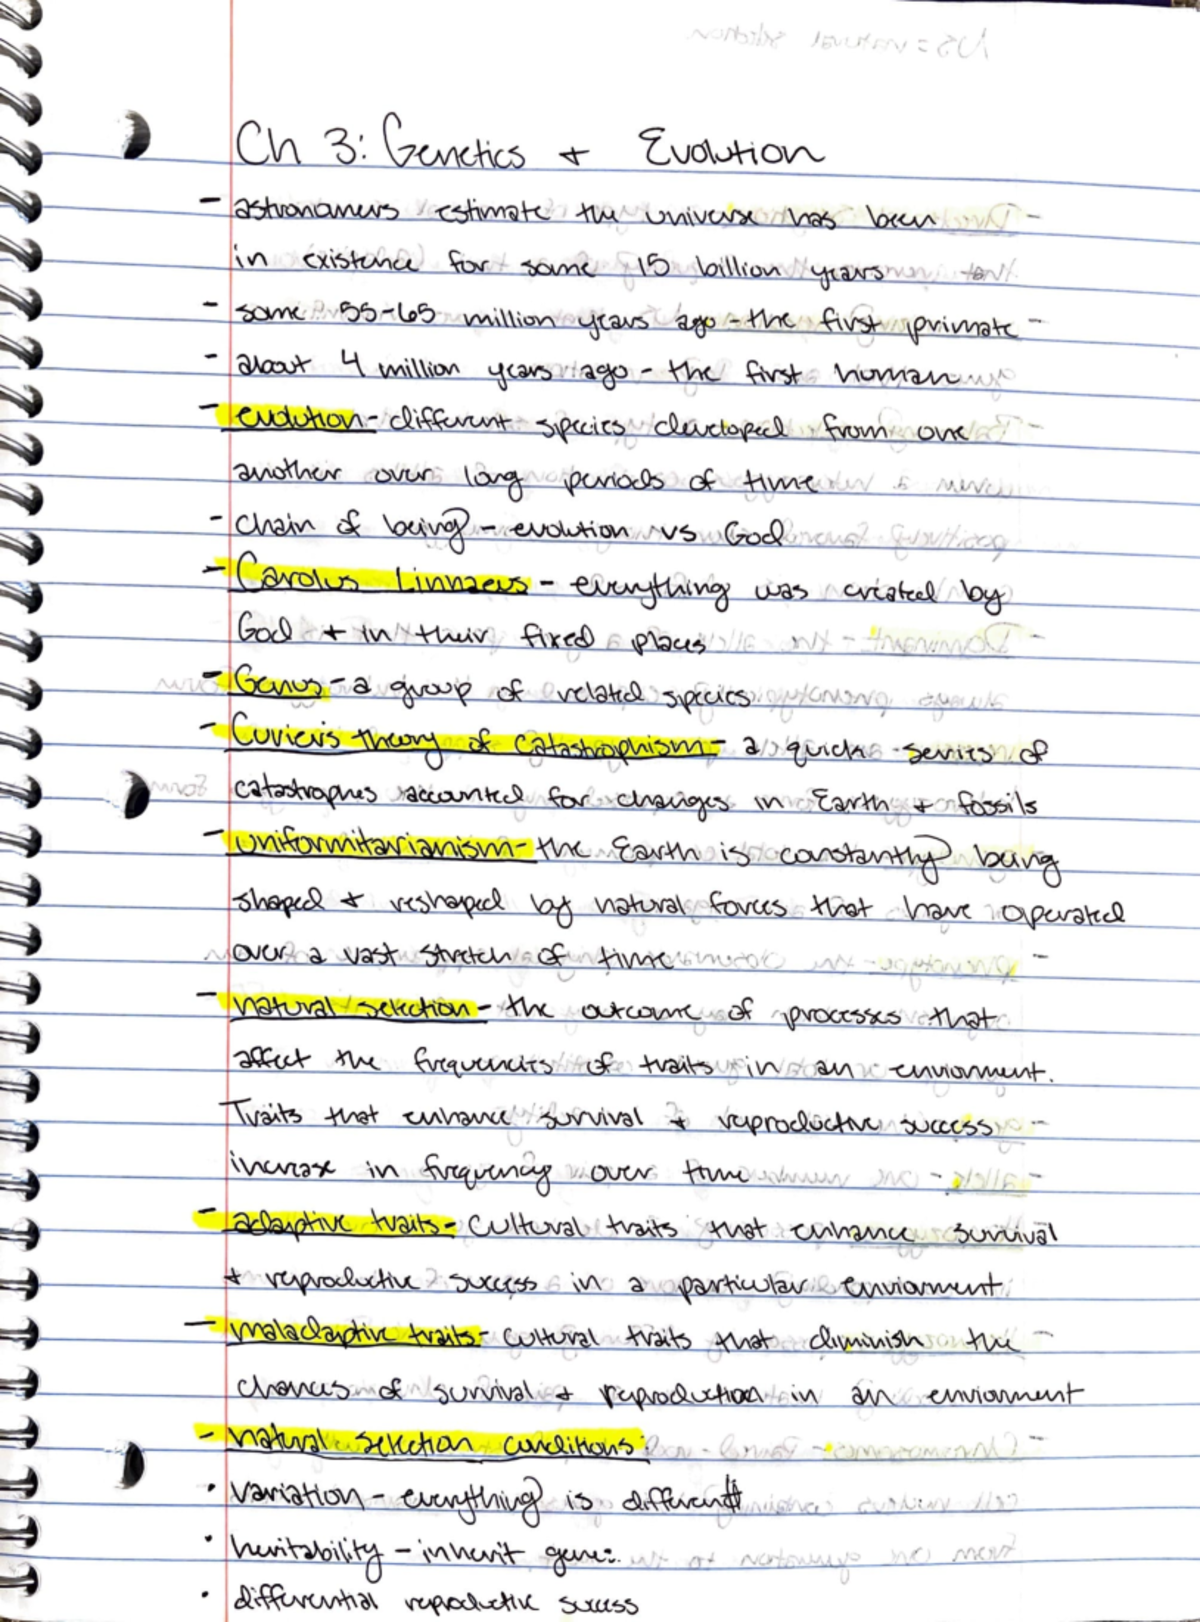 Ch 3: Genetics + Evolution
- astronomers estimate the universe has been
in existence for some 15 billion years
- some 55-65 million years ago - the first primate
- about 4 million years ago - the first human
- evolution - different species developed from one
another over long periods of time
- chain of being - evolution vs God
- Carolus Linnaeus - everything was created by
God + in their fixed places
- Genus - a group of related species
- Cuvier's theory of catastrophism - a quick series of
catastrophes accounted for changes in Earth + fossils
- uniformitarianism - the Earth is constantly being
shaped + reshaped by natural forces that have operated
over a vast stretch of time
- natural selection - the outcome of processes that
affect the frequencies of traits in an enviorment.
Traits that enhance survival + reproductive success
increase in frequency over time
- adaptive traits - cultural traits that enhance survival
+ reproductive success in a particular enviorment
- maladaptive traits - cultural traits that diminish the
chances of survival + reproduction in an enviorment
- natural selection conditions:
· variation - everything is different
· heritability - inherit genes
· differential reproductive success